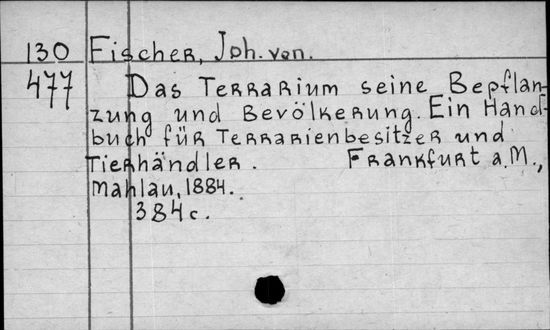 130 Fischer, Joh. von.
477 Das Terrarium seine Bepflan-
zung und Bevölkerung. Ein Hand-
buch für Terrarienbesitzer und
Tierhändler. Frankfurt a.M.,
Mahlau, 1884.
384c.